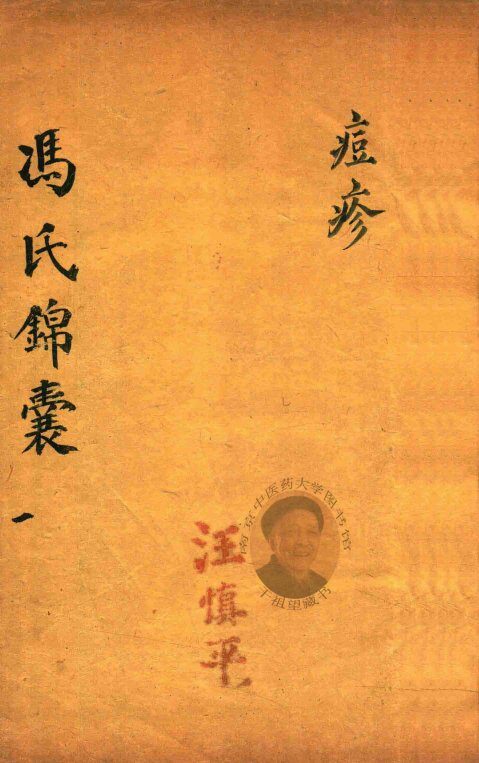 痘疹
馮氏錦囊
一
汪慎平
南京中医药大学图书馆
干祖望藏书